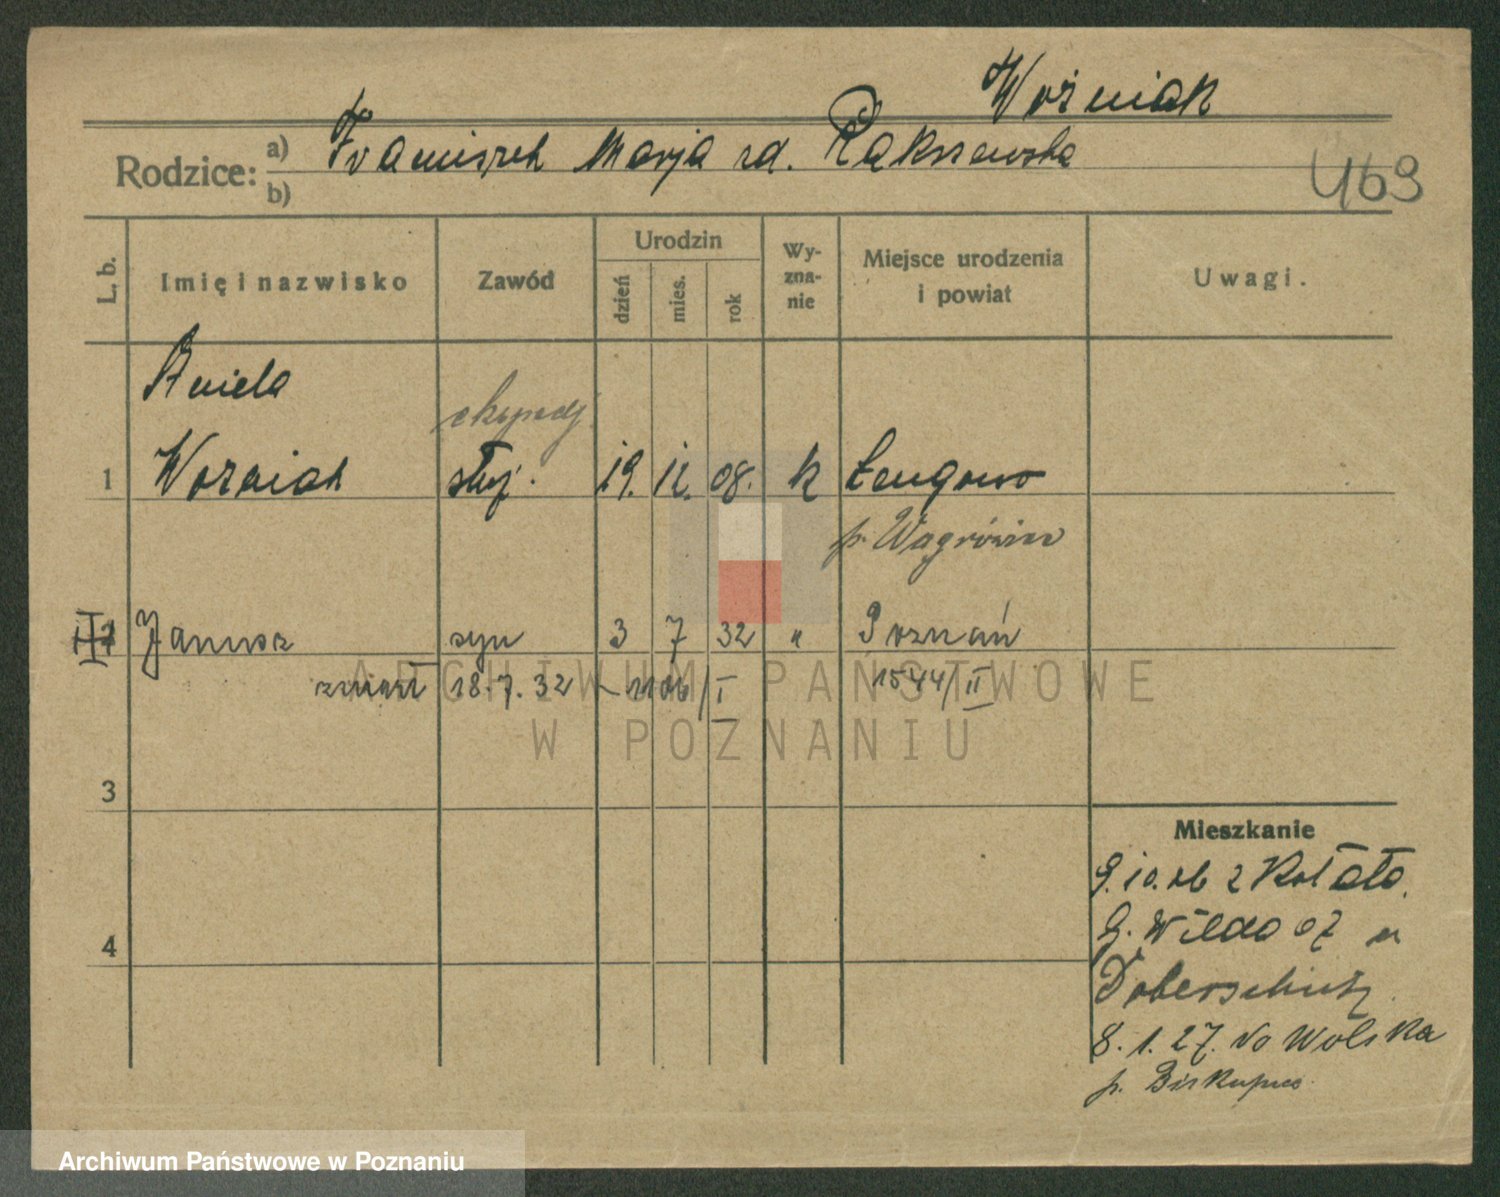 Woźniak
Rodzice: a) Franciszek Marja rd. Rakszewska
b)
469
L. b. Imię i nazwisko Zawód Urodzin dzień mies. rok Wyzna-nie Miejsce urodzenia i powiat Uwagi.
Aniela
ekspedj.
1 Woźniak służ. 19. 12. 08. k Łengowo
p. Wągrówiec
2 Janusz syn 3 7 32 " Poznań
zmarł 18.7.32 1544/II
ARCHIWUM PAŃSTWOWE
W POZNANIU
3
Mieszkanie
9.10.26 z
4
G. Wilda 07 u
Doberschütz
8. 1. 27. do Wolska
p. Biskupice
Archiwum Państwowe w Poznaniu